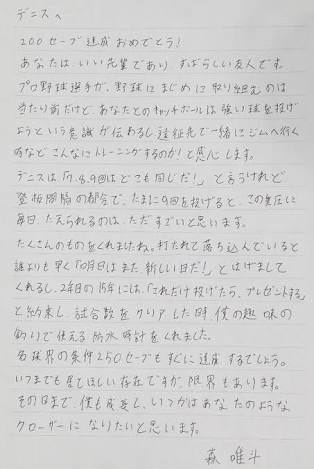 デニスへ
200セーブ達成おめでとう!
あなたは、いい先輩であり、すばらしい友人です。
プロ野球選手が、野球にまじめに取り組むのは
当たり前だけど、あなたとのキャッチボールは強い球を投げ
ようという意識が伝わるし遠征先で一緒にジムへ行く
時など こんなにトレーニングするのか!と感心します。
デニスは「7.8.9回はどこも同じだ!」と言うけれど
登板間隔の都合で、たまに9回を投げると、この重圧に
毎日、たえられるのは、ただすごいと思います。
たくさんのものをくれましたね。打たれて落ち込んでいると
誰よりも早く「明日はまた新しい日だ!」とはげまして
くれるし、2年目の15年には、「これだけ投げたら、プレゼントする」
と約束し、試合数をクリアした時、僕の趣味の
釣りで使える防水時計をくれました。
名球界の条件250セーブもすぐに達成するでしょう。
いつまでも居てほしい存在ですが、限界もあります。
その日まで、僕も成長し、いつかはあなたのような
クローザーに なりたいと思います。
森 唯斗